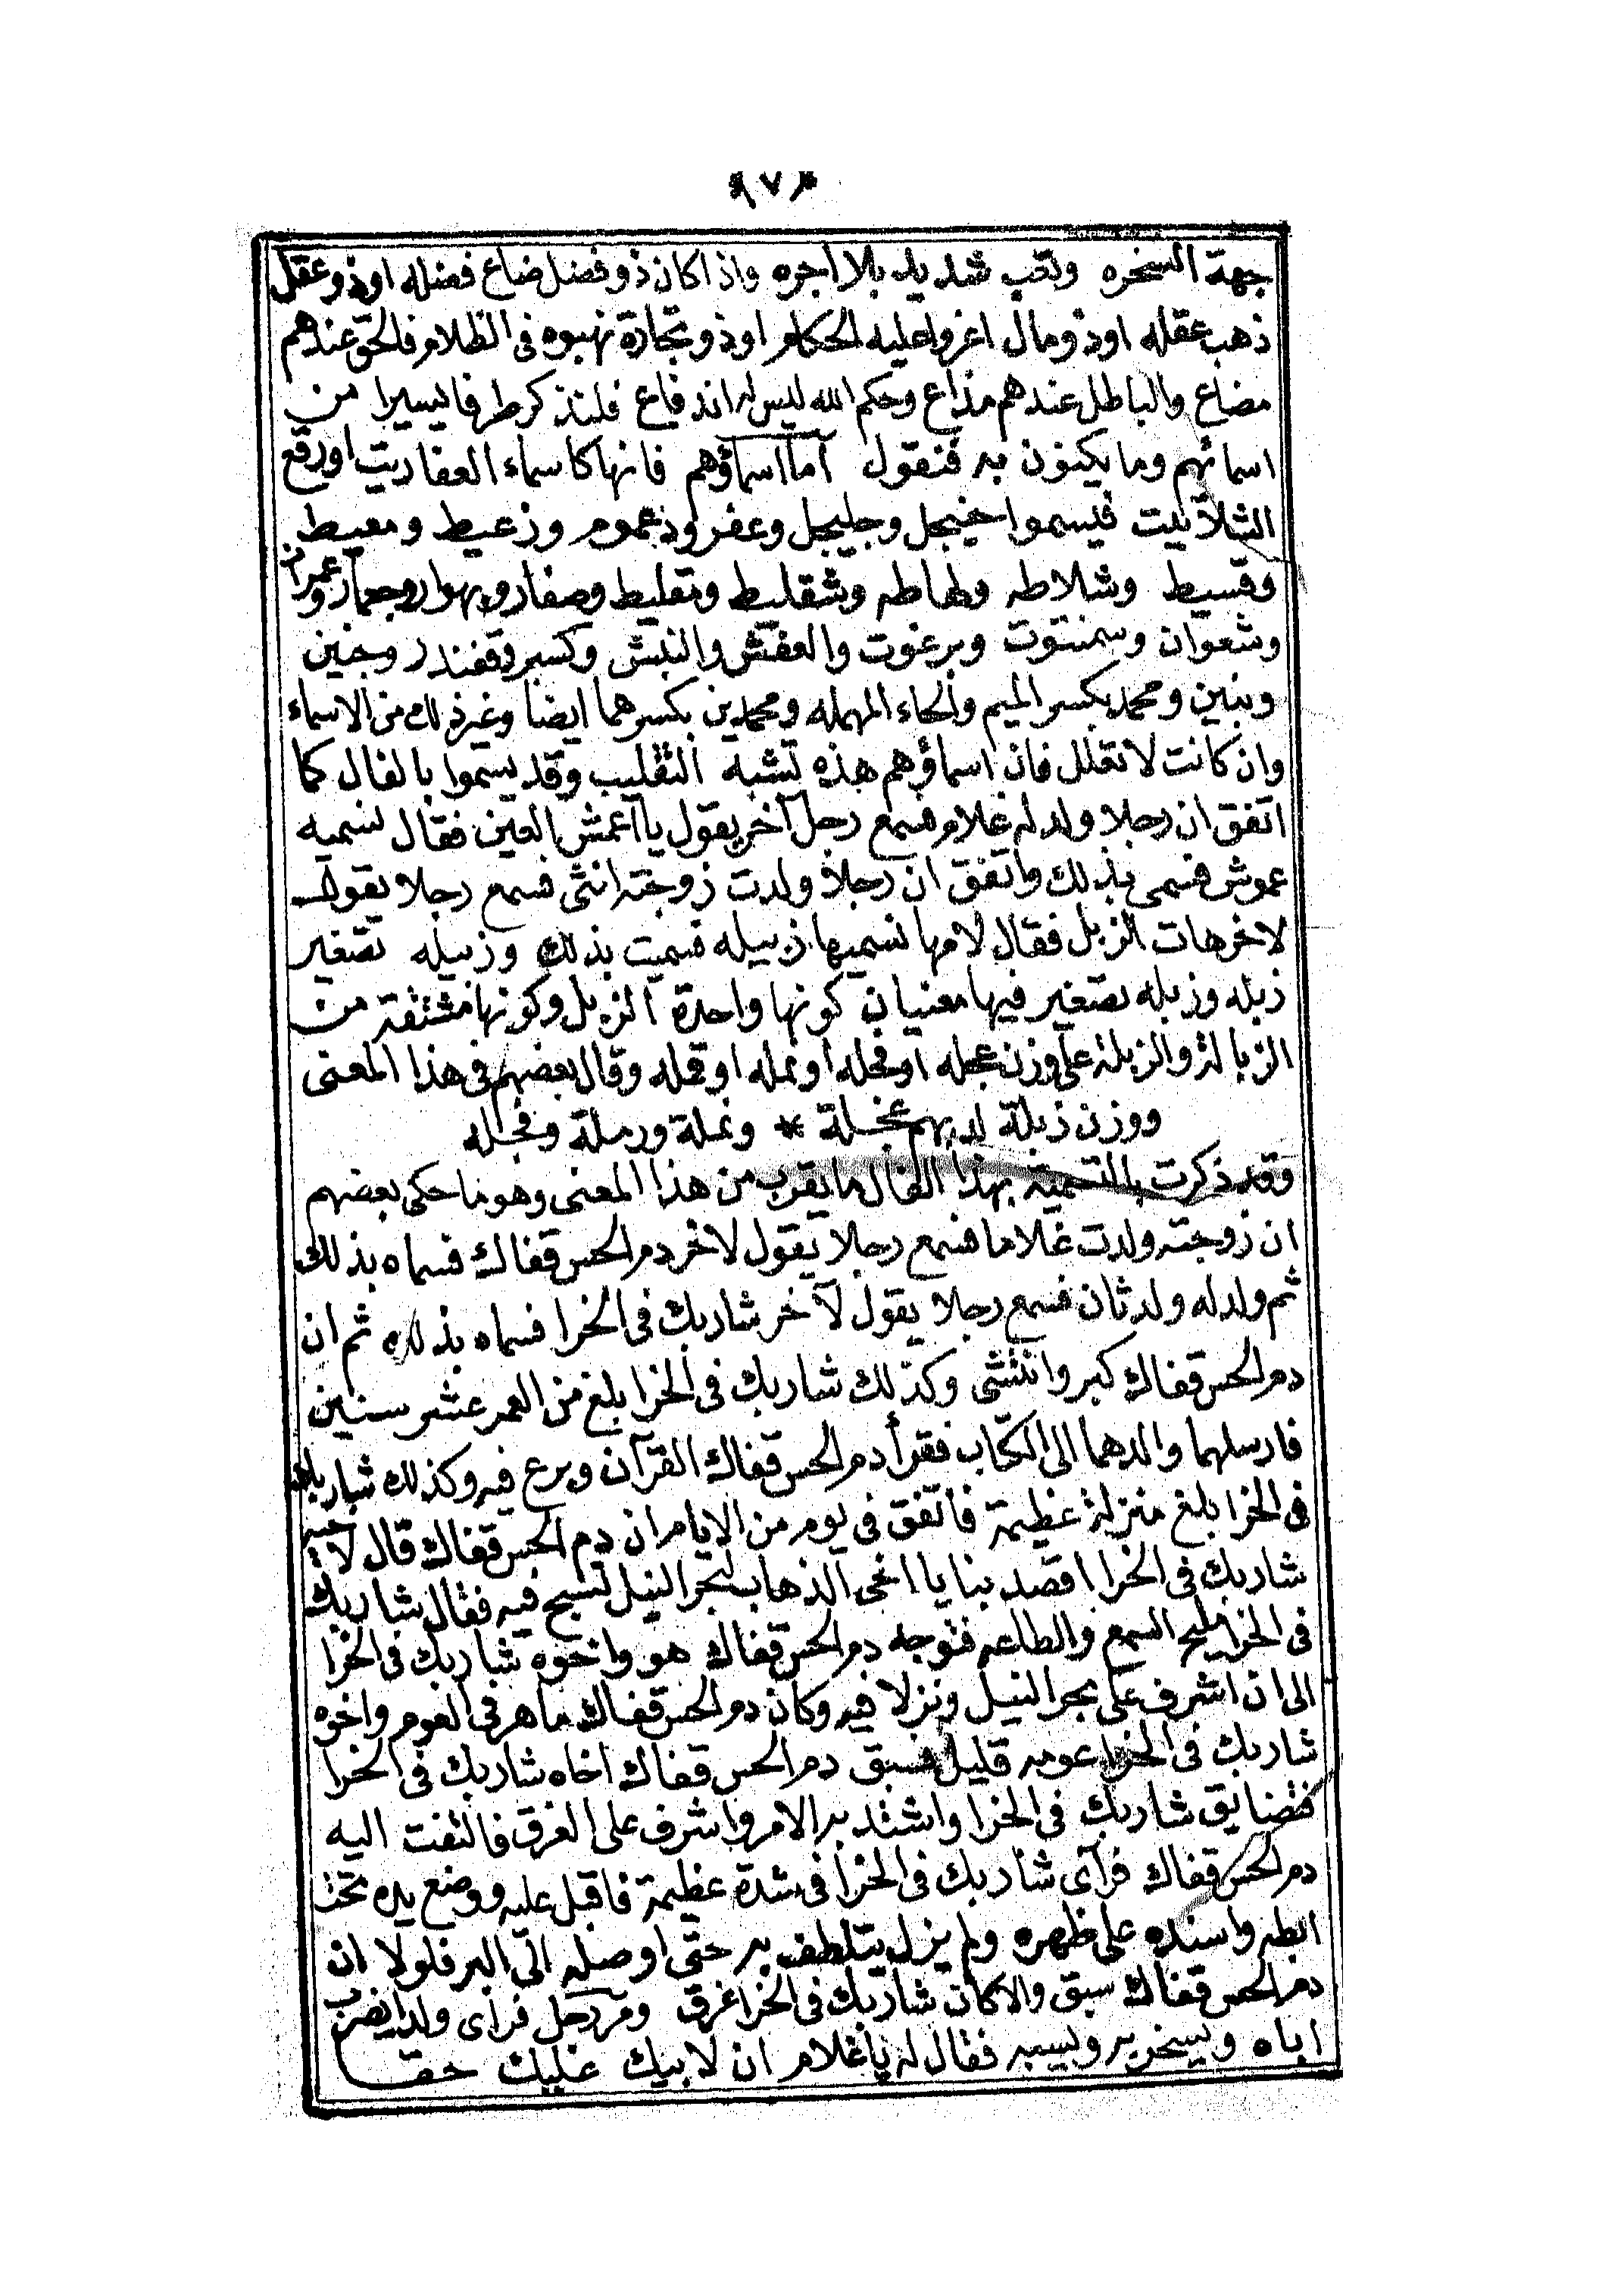 *٧*
جهة السخره وتعب شديد بلا اجره واذا كان ذو فضل ضاع فضله اوذو عقل
ذهب عقله اوذو مال اغروا عليه الحكام اوذو تجارة نهبوه فى الظلام فالحق عندهم
مضاع والباطل عندهم مذاع وحكم الله ليس له اندفاع فلنذكر طرفا يسيرا من
اسمائهم وما يكنون به فنقول اما اسماؤهم فانها كاسماء العفاريت اورقع
الشلاتيت فيسموا جنيجل وجليجل وعفر ودعموم وزعيط ومعيط
وقسيط وشلاطه ولهاطه وشقليط ومقليط وصفار وبهوار وجعمار وعمران
وشعوان وسمنتوت وبرغوت والعفش والنبش وكسبر وقفندر وجنين
وبنين ومحمد بكسر الميم والحاء المهمله ومحمدين بكسرهما ايضا وغير ذلك من الاسماء
وان كانت لا تعلل فان اسماؤهم هذه تشبه التقليب وقد يسموا بالفال كما
اتفق ان رجلا ولد له غلام فسمع رجل آخر يقول يا اعمش العين فقال نسميه
عموش فسمى بذلك واتفق ان رجلا ولدت زوجته انثى فسمع رجلا يقول
لاخرهات الزبل فقال لامها نسميها زبيله فسميت بذلك وزبيله تصغير
زبله وزبله تصغير فيها معنيان كونها واحدة الزبل وكونها مشتقة من
الزبالة والزبلة على وزن عجله او فجله او نمله او قمله وقال بعضهم فى هذا المعنى
ووزن زبلة لديهم عجلة * ونملة ورملة وفجله
وقد ذكرت بالتسمية بهذا الفال ما يقرب من هذا المعنى وهو ما حكى بعضهم
ان زوجته ولدت غلاما فسمع رجلا يقول لاخر دم الحس قفاك فسماه بذلك
ثم ولد له ولد ثان فسمع رجلا يقول لآخر شاربك فى الخرا فسماه بذلك ثم ان
دم الحس قفاك كبر وانتشى وكذلك شاربك فى الخرا بلغ من العمر عشر سنين
فارسلهما والدهما الى الكتاب فقرأ دم الحس قفاك القرآن وبرع فيه وكذلك شاربك
فى الخرا بلغ منزلة عظيمة فاتفق فى يوم من الايام ان دم الحس قفاك قال لاخيه
شاربك فى الخرا اقصد بنا يا اخى الذهاب لبحر النيل لنسبح فيه فقال شاربك
فى الخرا مليح السمع والطاعه فتوجه دم الحس قفاك هو واخوه شاربك فى الخرا
الى ان اشرف على بحر النيل ونزلا فيه وكان دم الحس قفاك ماهر فى العوم واخوه
شاربك فى الخرا عومه قليل فسبق دم الحس قفاك اخاه شاربك فى الخرا
فتضايق شاربك فى الخرا واشتد به الامر واشرف على الغرق فالتفت اليه
دم الحس قفاك فرآى شاربك فى الخرا فى شدة عظيمة فاقبل عليه ووضع يده تحت
ابطه واسنده على ظهره ولم يزل يتلطف به حتى اوصله الى البر فلولا ان
دم الحس قفاك سبق والا كان شاربك فى الخرا غرق ومر رجل فراى ولدا يضرب
اباه ويسخر به ويسبه فقال له يا غلام ان لابيك عليك حقا